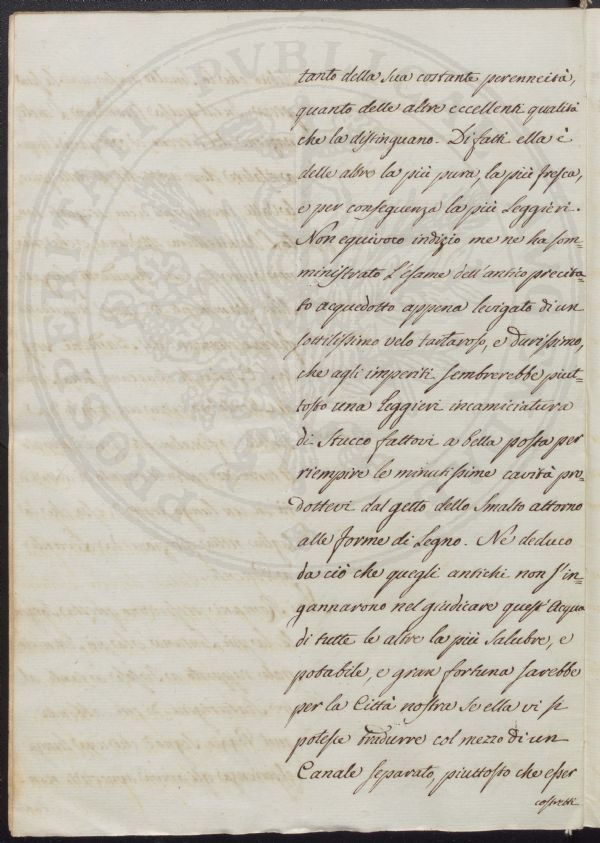 tanto della sua costante perennità,
quanto delle altre eccellenti qualità
che la distinguano. Di fatti ella è
delle altre la più pura, la più fresca,
e per conseguenza la più Leggieri.
Non equivoco indizio me ne ha som=
ministrato L'esame dell'antico precita=
to acquedotto appena levigato di un
sottilissimo velo tartaroso, e durissimo,
che agli imperiti sembrerebbe piut=
tosto una leggieri incamiciatura
di Stucco fattovi a bella posta per
riempire le minutissime cavità pro=
dottevi dal getto dello Smalto attorno
alle forme di Legno. Ne deduco
da ciò che quegli antichi non s'in=
gannarono nel giudicare quest'Acqua
di tutte le altre la più salubre, e
potabile, e gran fortuna sarebbe
per la Città nostra se ella vi si
potesse tradurre col mezzo di un
Canale separato, piuttosto che esser
costretti
PROSPERITATI PUBLICAE